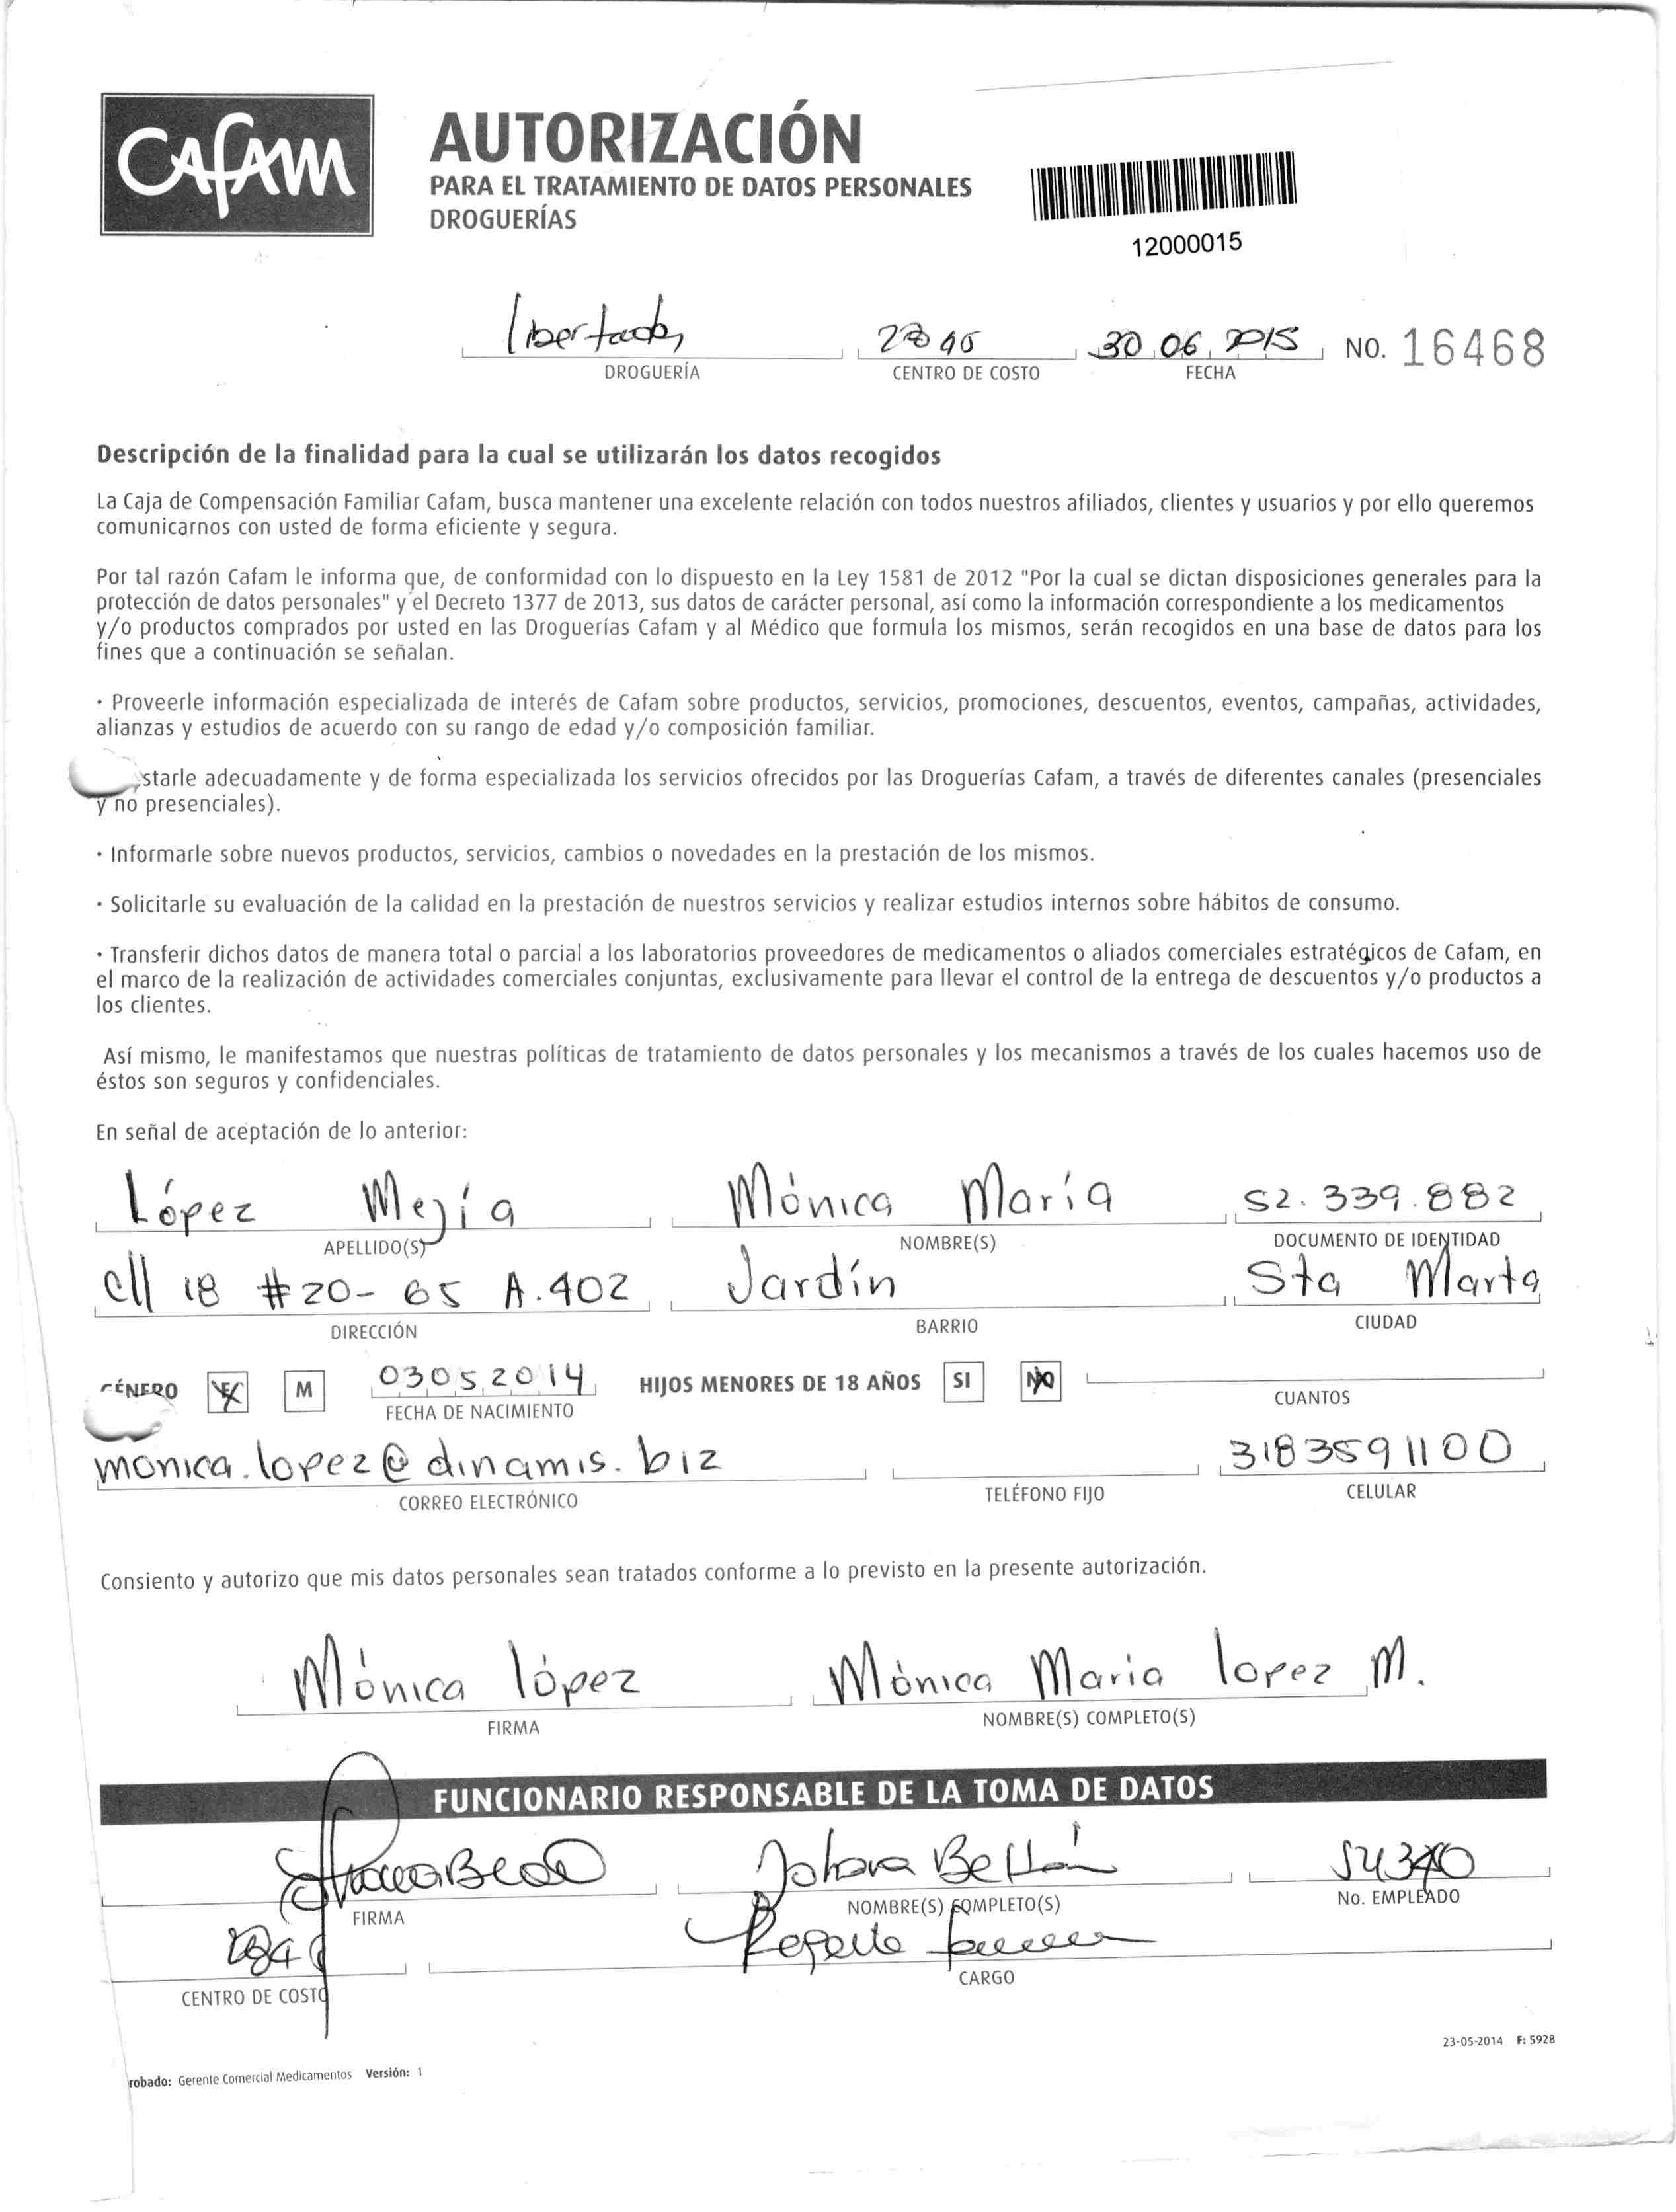 CAFAM
AUTORIZACIÓN
PARA EL TRATAMIENTO DE DATOS PERSONALES
DROGUERÍAS
12000015
30 06 2015 NO. 16468
DROGUERÍA CENTRO DE COSTO FECHA
Descripción de la finalidad para la cual se utilizarán los datos recogidos
La Caja de Compensación Familiar Cafam, busca mantener una excelente relación con todos nuestros afiliados, clientes y usuarios y por ello queremos
comunicarnos con usted de forma eficiente y segura.
Por tal razón Cafam le informa que, de conformidad con lo dispuesto en la Ley 1581 de 2012 "Por la cual se dictan disposiciones generales para la
protección de datos personales" y el Decreto 1377 de 2013, sus datos de carácter personal, así como la información correspondiente a los medicamentos
y/o productos comprados por usted en las Droguerías Cafam y al Médico que formula los mismos, serán recogidos en una base de datos para los
fines que a continuación se señalan.
· Proveerle información especializada de interés de Cafam sobre productos, servicios, promociones, descuentos, eventos, campañas, actividades,
alianzas y estudios de acuerdo con su rango de edad y/o composición familiar.
starle adecuadamente y de forma especializada los servicios ofrecidos por las Droguerías Cafam, a través de diferentes canales (presenciales
y no presenciales).
· Informarle sobre nuevos productos, servicios, cambios o novedades en la prestación de los mismos.
· Solicitarle su evaluación de la calidad en la prestación de nuestros servicios y realizar estudios internos sobre hábitos de consumo.
· Transferir dichos datos de manera total o parcial a los laboratorios proveedores de medicamentos o aliados comerciales estratégicos de Cafam, en
el marco de la realización de actividades comerciales conjuntas, exclusivamente para llevar el control de la entrega de descuentos y/o productos a
los clientes.
Así mismo, le manifestamos que nuestras políticas de tratamiento de datos personales y los mecanismos a través de los cuales hacemos uso de
éstos son seguros y confidenciales.
En señal de aceptación de lo anterior:
López Mejía Mónica María 52.339.882
APELLIDO(S) NOMBRE(S) DOCUMENTO DE IDENTIDAD
Cll 18 #20-65 A.402 Jardín Sta Marta
DIRECCIÓN BARRIO CIUDAD
GÉNERO F M 03 05 2014 HIJOS MENORES DE 18 AÑOS SI NO
FECHA DE NACIMIENTO CUANTOS
monica.lopez@dinamis.biz 3183591100
CORREO ELECTRÓNICO TELÉFONO FIJO CELULAR
Consiento y autorizo que mis datos personales sean tratados conforme a lo previsto en la presente autorización.
Mónica lópez Mónica Maria lopez M.
FIRMA NOMBRE(S) COMPLETO(S)
FUNCIONARIO RESPONSABLE DE LA TOMA DE DATOS
FIRMA NOMBRE(S) COMPLETO(S) No. EMPLEADO
CENTRO DE COSTO CARGO
23-05-2014 F: 5928
robado: Gerente Comercial Medicamentos Versión: 1